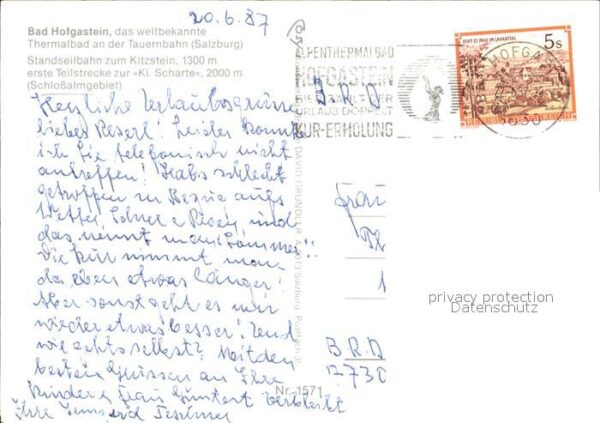 20.6.87
Bad Hofgastein, das weltbekannte
Thermalbad an der Tauernbahn (Salzburg)
Standseilbahn zum Kitzstein, 1300 m
erste Teilstrecke zur »Kl. Scharte«, 2000 m
(Schloßalmgebiet)
Herzliche Urlaubsgrüsse
liebes Reserl! Leider konnt
ich Sie telefonisch nicht
antreffen! Habs schlecht
getroffen in Bezug aufs
Wetter, Schnee & Regen, und
das nennt man Sommer!!
Die Kur nimmt man
da eben etwas länger!
Aber sonst geht es mir
wieder etwas besser! Und
wie gehts selbst? Mit den
besten Grüssen an Ihre
Kinder & Frau verbleibt
Ihre
ALPENTHERMALBAD
HOFGASTEIN
URLAUB DOPPELT
KUR-ERHOLUNG
STIFT ST. PAUL IM LAVANTTAL
5s
REPUBLIK ÖSTERREICH
HOFGA
5630
B.R.D
DAVID GRÜNDLER, A-5013 Salzburg, Postfach
Frau
1
privacy protection
Datenschutz
B.R.D
7730
Nr. 1571